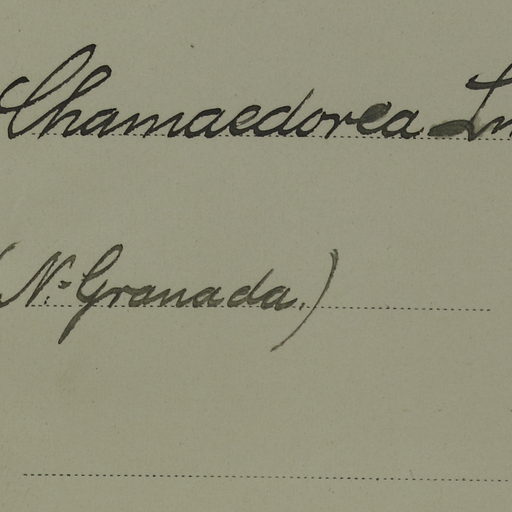 Chamaedorea
(N.-Granada.)